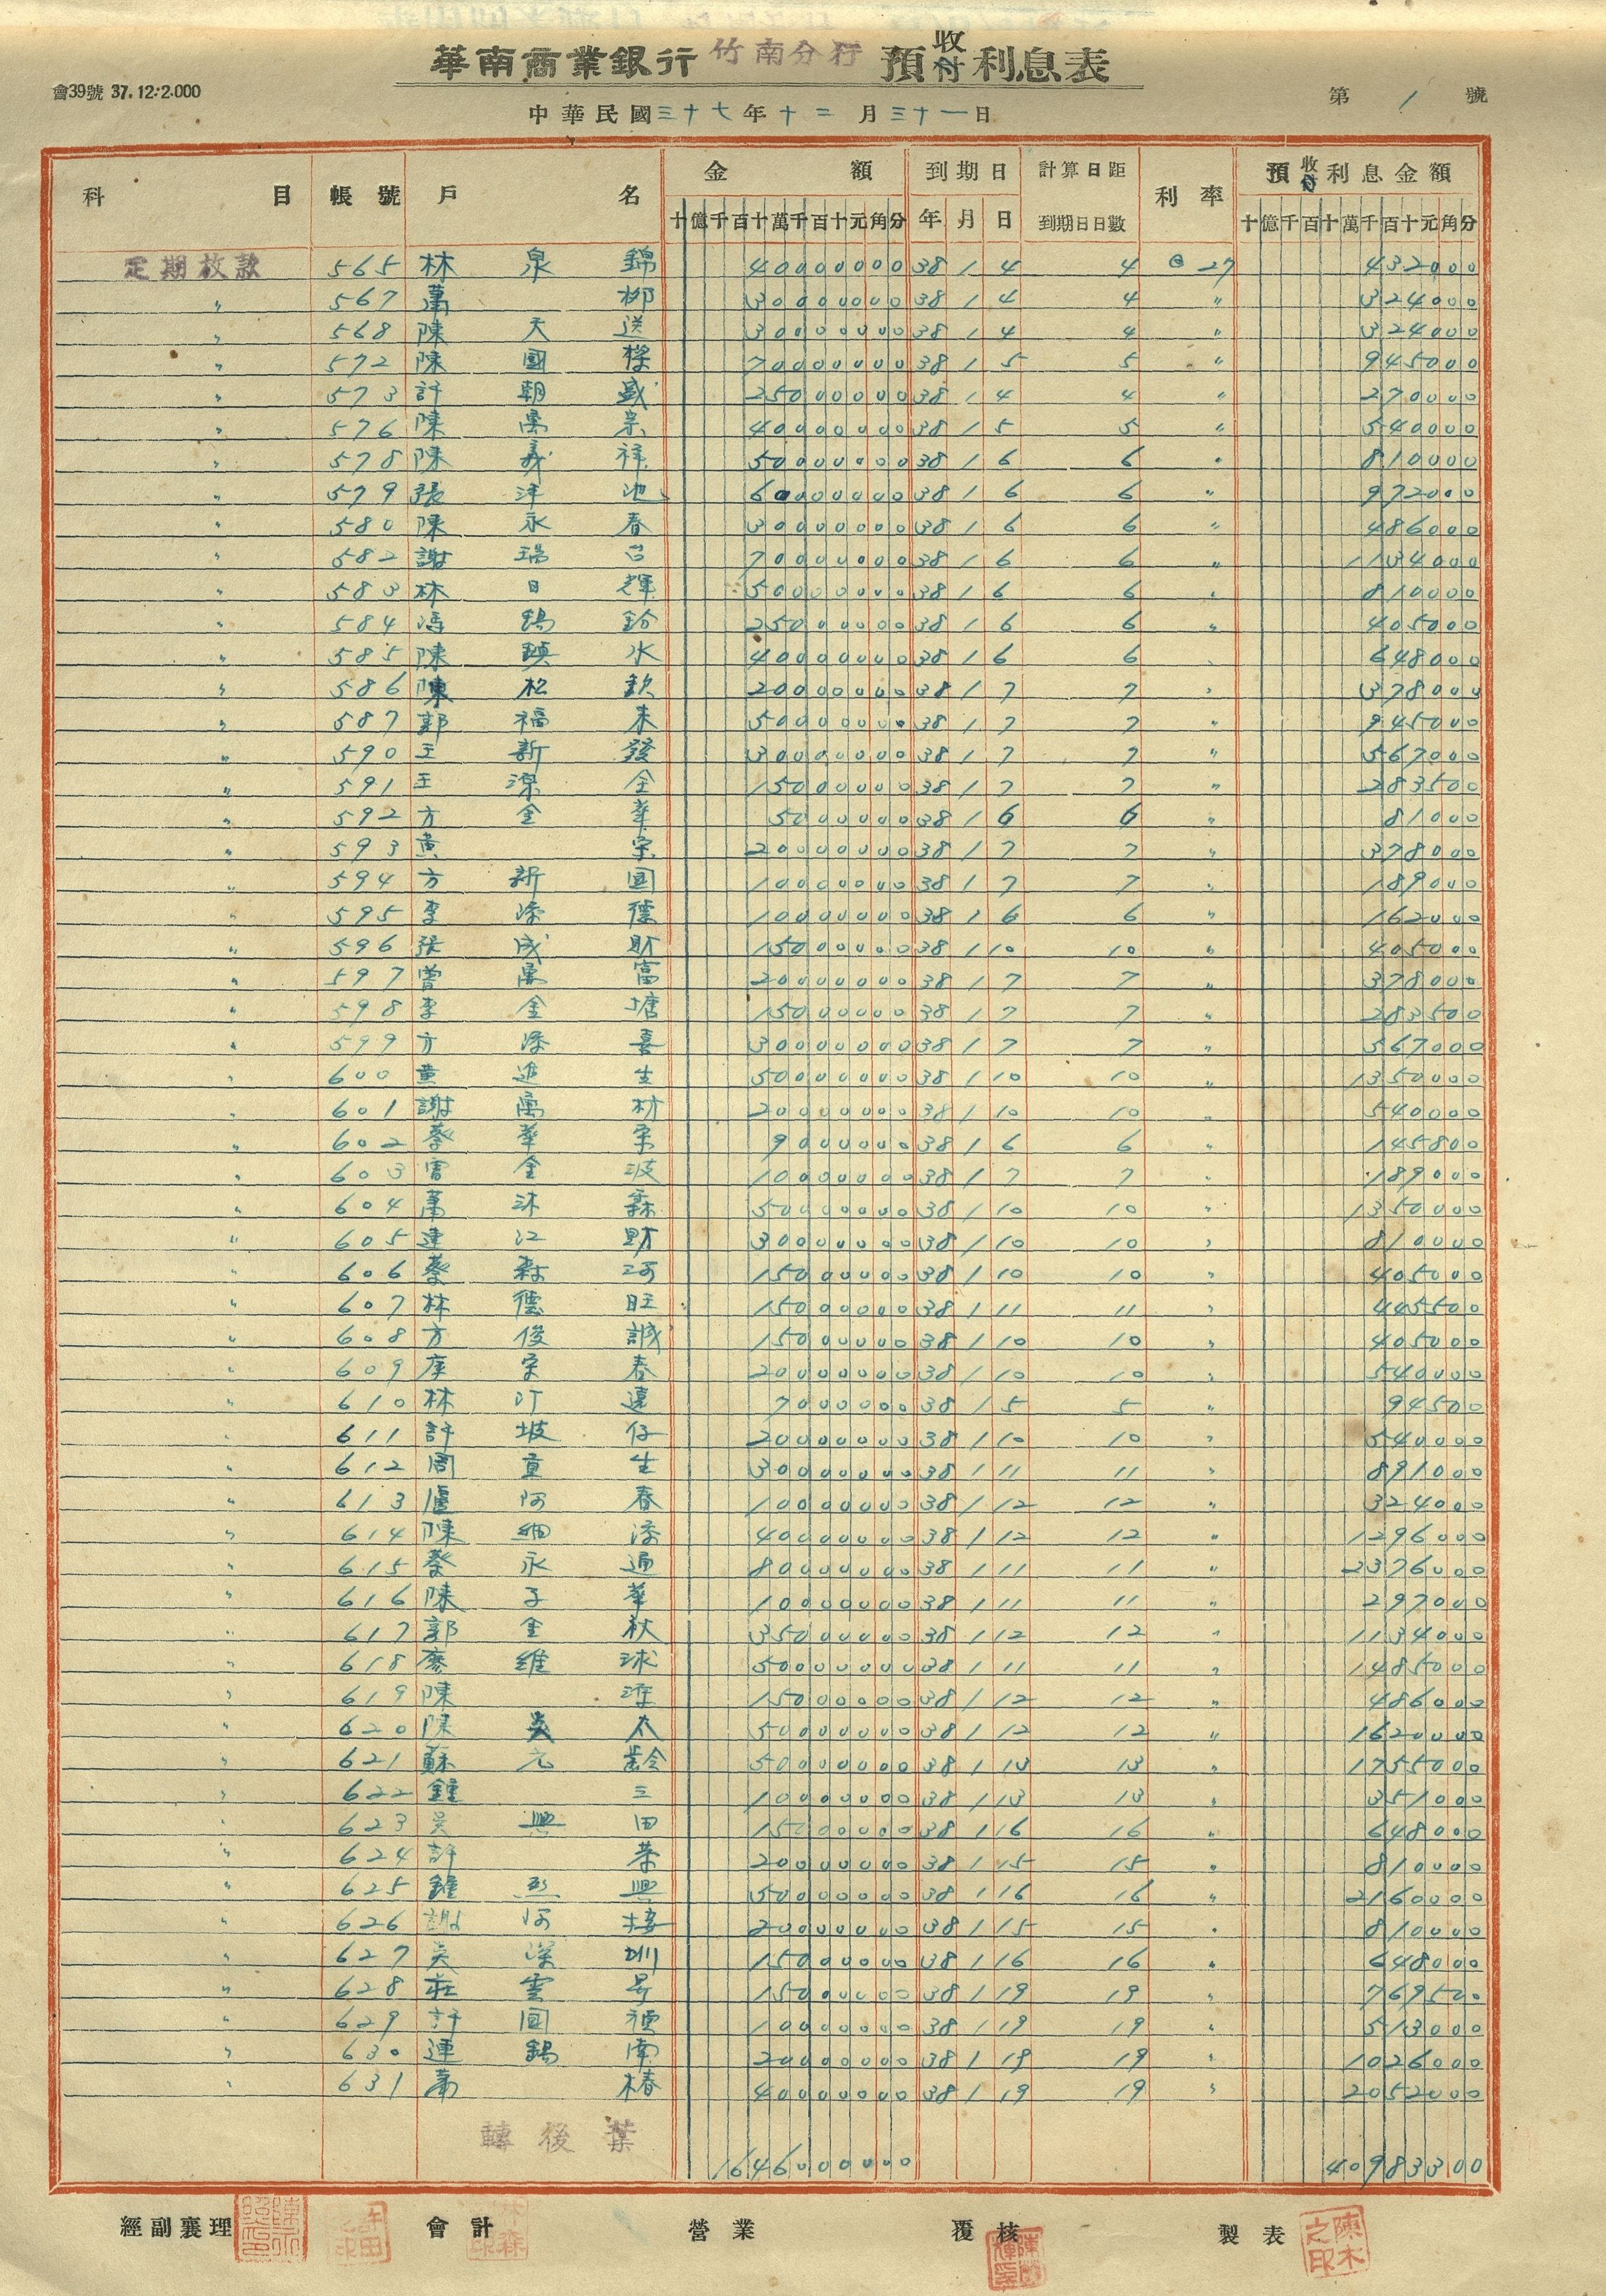 華南商業銀行 竹南分行 預收付利息表
會39號 37.12.2.000
中華民國三十七年十二月三十一日
第 1 號
科目 帳號 戶名 金額 到期日 計算日距到期日日數 利率 預收付利息金額
十億千百十萬千百十元角分 年 月 日 十億千百十萬千百十元角分
定期放款 565 林泉錦 40000000 38 1 4 4 @ 27 432000
〃 567 蕭柳 30000000 38 1 4 4 〃 324000
〃 568 陳天送 30000000 38 1 4 4 〃 324000
〃 572 陳國樑 70000000 38 1 5 5 〃 945000
〃 573 許朝盛 25000000 38 1 4 4 〃 270000
〃 576 陳萬宗 40000000 38 1 5 5 〃 540000
〃 578 陳義祥 50000000 38 1 6 6 〃 810000
〃 579 張洋池 60000000 38 1 6 6 〃 972000
〃 580 陳永春 30000000 38 1 6 6 〃 486000
〃 582 謝瑞 70000000 38 1 6 6 〃 1134000
〃 583 林日輝 50000000 38 1 6 6 〃 810000
〃 584 馮錫鈴 25000000 38 1 6 6 〃 405000
〃 585 陳鎮水 40000000 38 1 6 6 〃 648000
〃 586 陳松欽 20000000 38 1 7 7 〃 378000
〃 587 郭福來 50000000 38 1 7 7 〃 945000
〃 590 王新發 30000000 38 1 7 7 〃 567000
〃 591 王深全 15000000 38 1 7 7 〃 283500
〃 592 方金華 5000000 38 1 6 6 〃 81000
〃 593 黃宗 20000000 38 1 7 7 〃 378000
〃 594 方新圓 10000000 38 1 7 7 〃 189000
〃 595 李添德 10000000 38 1 6 6 〃 162000
〃 596 張成財 15000000 38 1 10 10 〃 405000
〃 597 曾萬富 20000000 38 1 7 7 〃 378000
〃 598 李金塘 15000000 38 1 7 7 〃 283500
〃 599 方添喜 30000000 38 1 7 7 〃 567000
〃 600 黃進生 50000000 38 1 10 10 〃 1350000
〃 601 謝萬材 20000000 38 1 10 10 〃 540000
〃 602 蔡華宗 9000000 38 1 6 6 〃 145800
〃 603 曾金波 10000000 38 1 7 7 〃 189000
〃 604 蕭沐森 50000000 38 1 10 10 〃 1350000
〃 605 連江財 30000000 38 1 10 10 〃 810000
〃 606 蔡森河 15000000 38 1 10 10 〃 405000
〃 607 林德旺 15000000 38 1 11 11 〃 445500
〃 608 方俊誠 15000000 38 1 10 10 〃 405000
〃 609 康宗春 20000000 38 1 10 10 〃 540000
〃 610 林汀遠 7000000 38 1 5 5 〃 94500
〃 611 許坡仔 20000000 38 1 10 10 〃 540000
〃 612 周重生 30000000 38 1 11 11 〃 891000
〃 613 盧阿春 10000000 38 1 12 12 〃 324000
〃 614 陳細添 40000000 38 1 12 12 〃 1296000
〃 615 蔡永通 80000000 38 1 11 11 〃 2376000
〃 616 陳子華 10000000 38 1 11 11 〃 297000
〃 617 郭金秋 35000000 38 1 12 12 〃 1134000
〃 618 廖維球 50000000 38 1 11 11 〃 1485000
〃 619 陳深 15000000 38 1 12 12 〃 486000
〃 620 陳吳太 50000000 38 1 12 12 〃 1620000
〃 621 蘇元齡 50000000 38 1 13 13 〃 1755000
〃 622 鍾三 10000000 38 1 13 13 〃 351000
〃 623 吳興田 15000000 38 1 16 16 〃 648000
〃 624 許榮 20000000 38 1 15 15 〃 810000
〃 625 鍾烈興 50000000 38 1 16 16 〃 2160000
〃 626 謝阿接 20000000 38 1 15 15 〃 810000
〃 627 吳深圳 15000000 38 1 16 16 〃 648000
〃 628 莊雲昇 15000000 38 1 19 19 〃 769500
〃 629 許國禎 10000000 38 1 19 19 〃 513000
〃 630 連錫南 20000000 38 1 19 19 〃 1026000
〃 631 蕭椿 40000000 38 1 19 19 〃 2052000
轉後葉 1646000000 40983300
經副襄理 會計 營業 覆核 製表
陳木之印